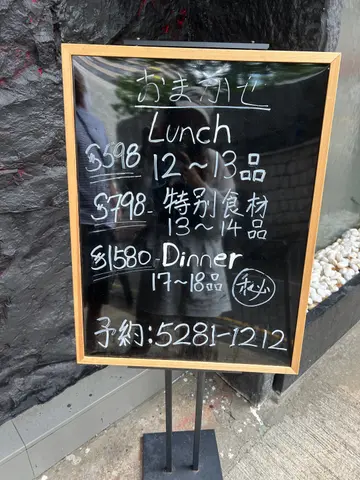 おまかせ
Lunch
$598 12~13品
$798- 特别食材
13~14品
$1580-Dinner
17~18品 秘
予約:5281-1212